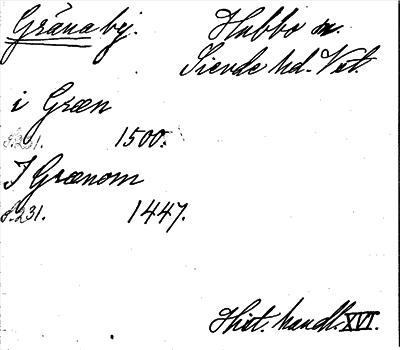 Gräna by. Hubbo sn.
Siende hd. Vstm.
i Græn
s. 231. 1500.
I Grænom
s. 231. 1447.
Hist. handl. XVI.